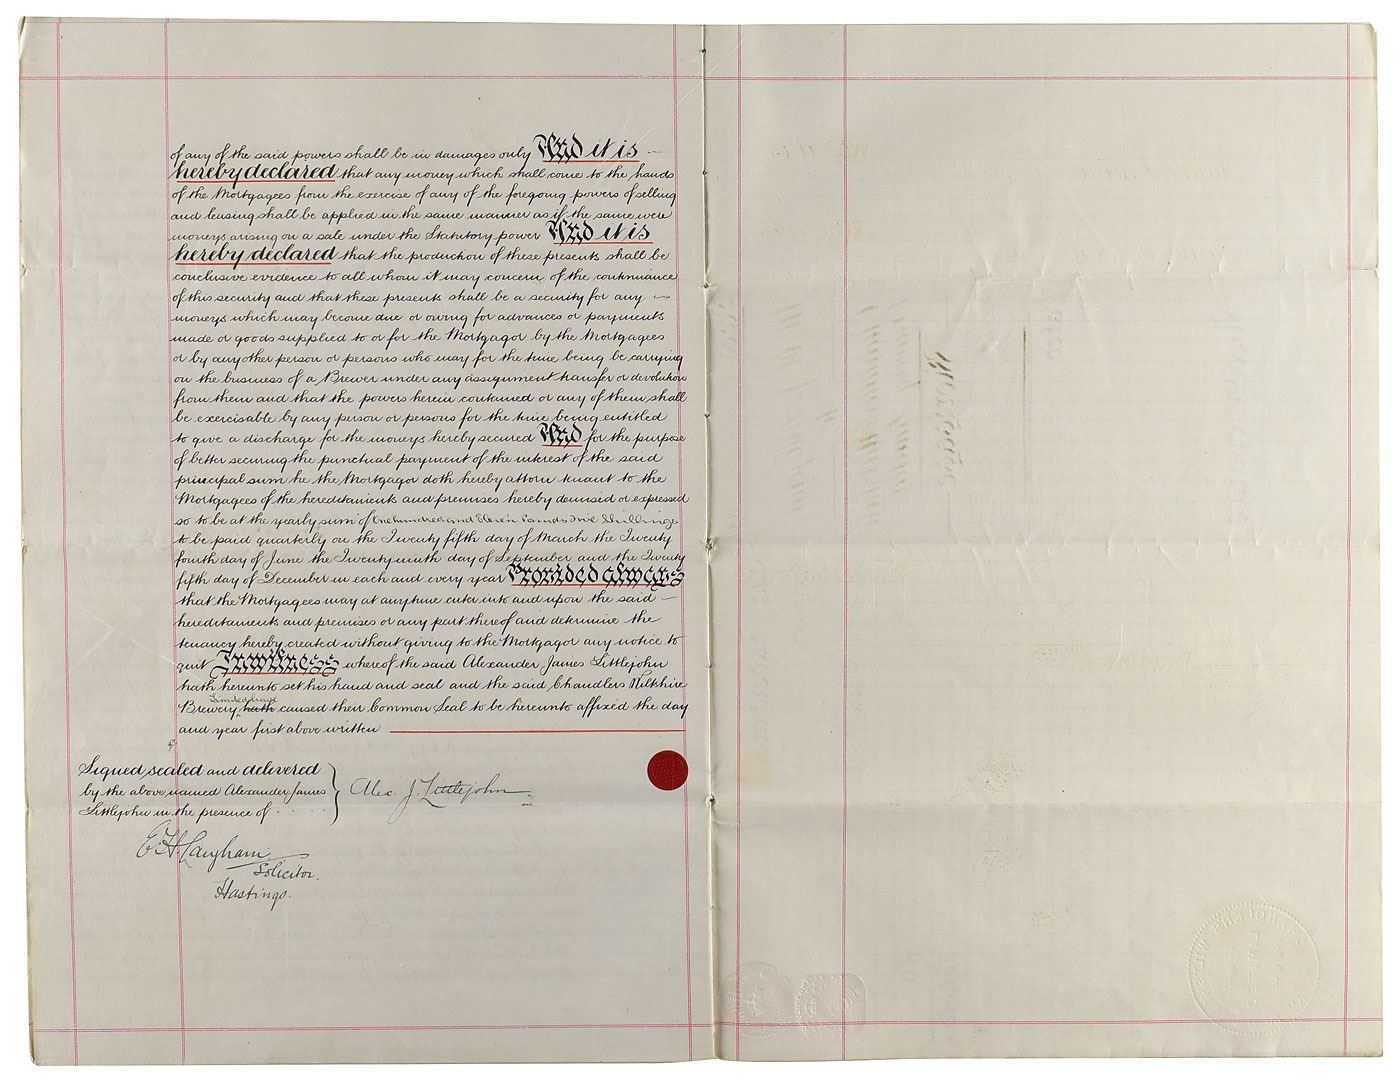 of any of the said powers shall be in damages only And it is
hereby declared that any money which shall come to the hands
of the Mortgagees from the exercise of any of the foregoing powers of selling
and leasing shall be applied in the same manner as if the same were
moneys arising on a sale under the Statutory power And it is
hereby declared that the production of these presents shall be
conclusive evidence to all whom it may concern of the continuance
of this security and that these presents shall be a security for any
moneys which may become due or owing for advances or payments
made or goods supplied to or for the Mortgagor by the Mortgagees
or by any other person or persons who may for the time being be carrying
on the business of a Brewer under any assignment transfer or devolution
from them and that the powers herein contained or any of them shall
be exercisable by any person or persons for the time being entitled
to give a discharge for the moneys hereby secured And for the purpose
of better securing the punctual payment of the interest of the said
principal sum he the Mortgagor doth hereby attorn tenant to the
Mortgagees of the hereditaments and premises hereby demised or expressed
so to be at the yearly sum of One hundred and Eleven Pounds Five Shillings
to be paid quarterly on the Twenty fifth day of March the Twenty
fourth day of June the Twenty ninth day of September and the Twenty
fifth day of December in each and every year Provided always
that the Mortgagees may at anytime enter into and upon the said
hereditaments and premises or any part thereof and determine the
tenancy hereby created without giving to the Mortgagor any notice to
quit In witness whereof the said Alexander James Littlejohn
hath hereunto set his hand and seal and the said Chandlers Wiltshire
Brewery Limited have hath caused their Common Seal to be hereunto affixed the day
and year first above written
Signed sealed and delivered
by the above named Alexander James
Littlejohn in the presence of
Alex. J. Littlejohn
E. H. Langham
Solicitor.
Hastings.